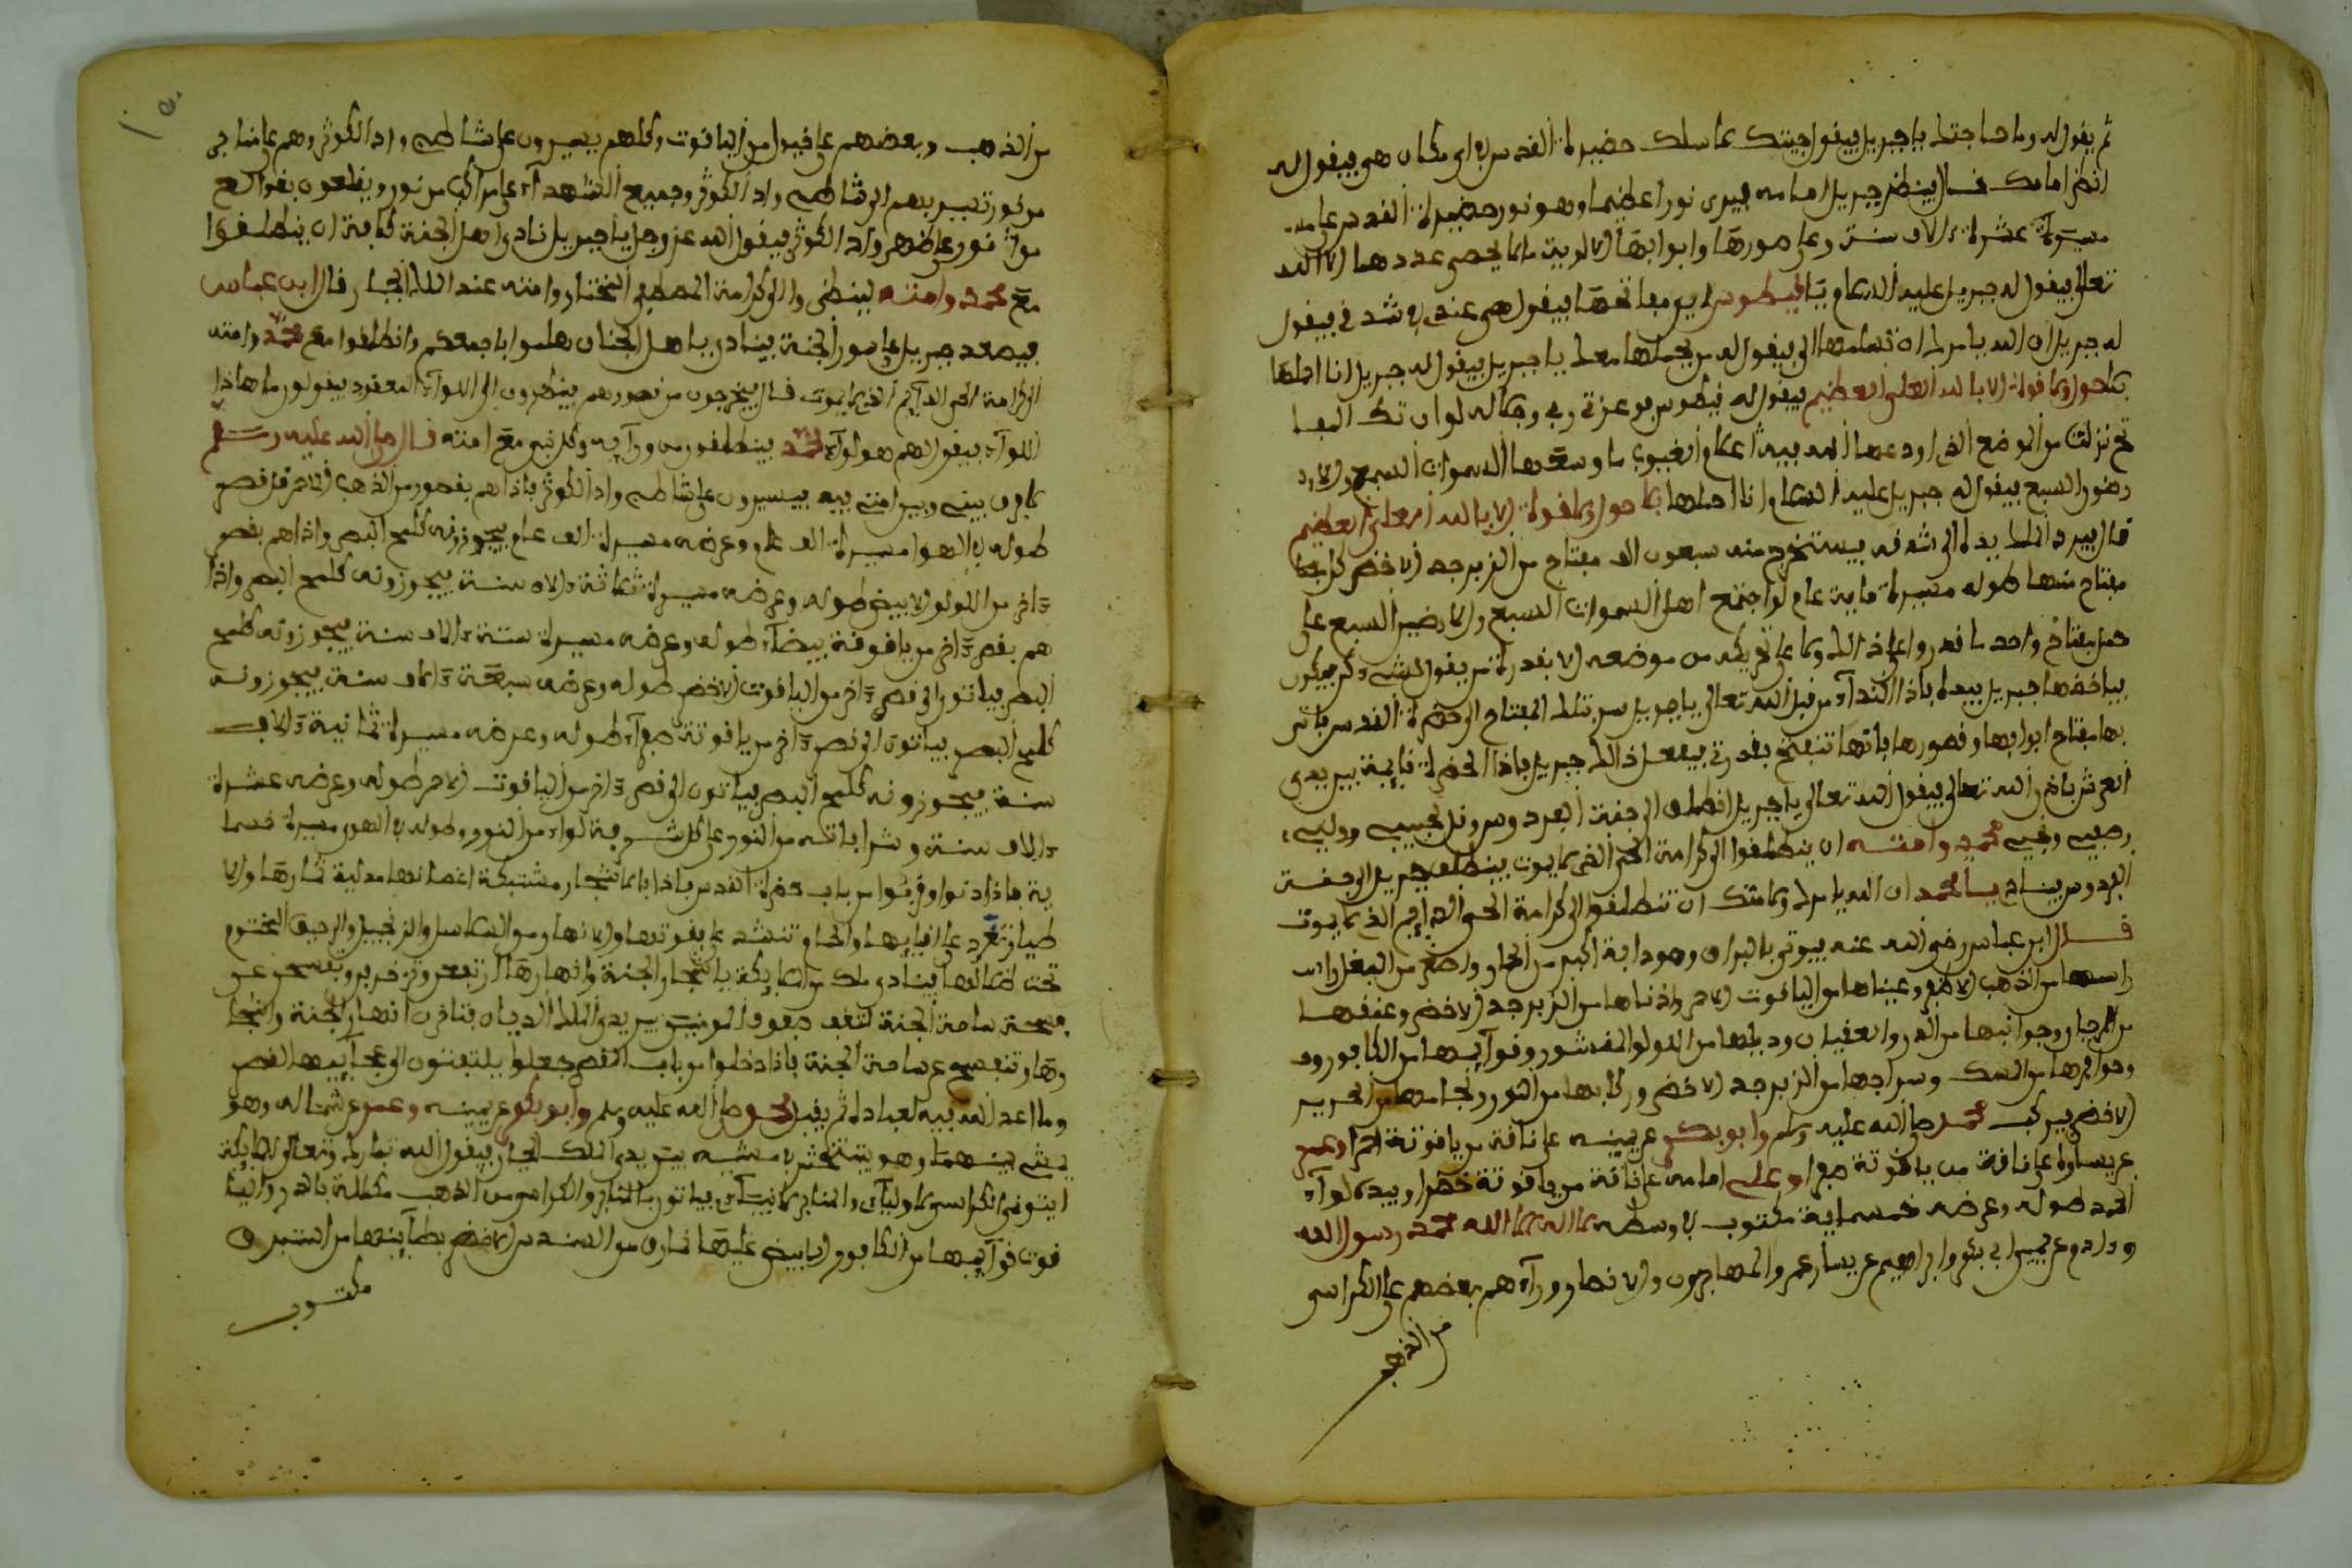 ثم يقول له وما حاجتك يا جبريل فيقول جيتك نسلك حضيرة القدس في اي مكان هي فيقول له
انظر امامك قال فينظر جبريل امامه فيرى نورا عظيما وهو نور حضيرة القدس على
مسيرة عشرة ءالاف سنة وعلى صورها وابوابها الملايكة ما لا يحصي عددها الا الله
تعالى فيقول له جبريل عليه السلام يا فيطوس اين مفاتحها فيقول هي عندي في شدقي فيقول
له جبريل ان الله يامرك ان تسلمها الي فيقول له من يحملها معك يا جبريل فيقول له جبريل انا احملها
بلا حول ولا قوة الا بالله العلي العظيم فيقول له فيطوس وعزة ربي وجلاله لو ان تلك المفا
تح نزلت من الموضع الذي اودعها الله فيه علام الغيوب ما وسعها السموات السبع والا
رضون السبع فيقول له جبريل عليه السلام انا احملها بلا حول ولا قوة الا بالله العلي العظيم
قال فيرد الملك يده الى شدقه فيستخرج منه سبعون الف مفتاح من الزبرجد الاخضر كل
مفتاح منها طوله مسيرة ماية عام لو اجتمع اهل السموات السبع والارضين السبع على
حمل مفتاح واحد ما قدروا على ذالك ولا على تحريكه من موضعه الا بقدرة من يقول للشيء كن فيكون
فياخذها جبريل بيده فاذا النداء من قبل الله تعالى يا جبريل سر بتلك المفتاح الى حضرة القدس
بها مفتاح ابوابها وقصورها فانها تنفتح بقدرتي فيفعل ذالك جبريل فاذا الحضرة قايمة بين يدي
العرش باذن الله تعالى فيقول الله تعالى يا جبريل انطلق الى جنة الفردوس وقل لحبيبي ووليي
وصفيي ونبيي محمد وامته ان ينطلقوا الى كرامة الحي الذي لا يموت فينطلق جبريل الى جنة
الفردوس فينادي يا محمد ان الله يامرك ولامتك ان تنطلقوا الى كرامة الحي الدايم الذي لا يموت
قال ابن عباس رضي الله عنه فيوتى بالبراق وهو دابة اكبر من الحمار واصغر من البغل راس
راسها من الذهب الاحمر وعيناها من الياقوت الاحمر واذناها من الزبرجد الاخضر وعنقها
من المرجان وجوانبها من الدر والعقيان وذيلها من اللولو المنشور وقوآيمها من الكافور
وحوافرها من المسك وسراجها من الزبرجد الاخضر وركابها من النور ولجامها من الحرير
الاخضر فيركب محمد صلى الله عليه وسلم وابو بكر عن يمينه على ناقة من ياقوتة حمرا وعمر
عن يساره على ناقة من ياقوتة صفرا وعلي امامه على ناقة من ياقوتة خضرا وبيده لوآء
الحمد طوله وعرضه خمسماية مكتوب في وسطه لا اله الا الله محمد رسول الله
وءادم عن يمين ابي بكر وابراهيم عن يسار عمر والمهاجرون والانصار ورآءهم بعضهم على الكراسي
من الذهب
من الذهب وبعضهم على خيول من الياقوت وكلهم يسيرون على شاطي واد الكوثر وهم على منابر
من نور تسير بهم الى شاطي واد الكوثر وجميع الشهدآء على مراكب من نور ويقلعون بقوالع
من نور على ظهر واد الكوثر فيقول الله عز وجل يا جبريل ناد في اهل الجنة كافة ان ينطلقوا
مع محمد وامته لينظروا الى كرامة المصطفى المختار وامته عند الملك الجبار قال ابن عباس
فيصعد جبريل على سور الجنة فينادي يا اهل الجنان هلموا باجمعكم وانطلقوا مع محمد وامته
الى كرامة الحي الدآيم الذي لا يموت قال فيخرجون من قصورهم ينظرون الى اللوآء المعقود فيقولون ما هاذا
اللوآء فيقول لهم هو لوآء محمد فينطلقون من ورآيه وكل نبي مع امته قال صلى الله عليه وسلم
لا فرق بيني وبين امتي فيه فيسيرون على شاطي واد الكوثر فاذا هم بقصور من الذهب الاحمر قصر
طوله في الهوا مسيرة الف عام وعرضه مسيرة الف عام فيجوزونه كلمح البصر واذا هم بقصر
ءاخر من اللولو الابيض طوله وعرضه مسيرة ثلاثة ءالاف سنة فيجوزونه كلمح البصر واذا
هم بقصر ءاخر من ياقوتة بيضآء طوله وعرضه مسيرة ستة ءالاف سنة فيجوزونه كلمح
البصر فياتون الى قصر ءاخر من الياقوت الاخضر طوله وعرضه سبعة ءالاف سنة فيجوزونه
كلمح البصر فياتون الى قصر ءاخر من ياقوتة صفرآء طوله وعرضه مسيرة ثمانية ءالاف
سنة فيجوزونه كلمح البصر فياتون الى قصر ءاخر من الياقوت الاحمر طوله وعرضه عشرة
ءالاف سنة وشرافاته من النور على كل شرفة لوآء من النور وطوله في الهوى مسيرة خمسما
ية فاذا دنوا وقربوا من باب حضرة القدس فاذا باشجار مشتبكة اغصانها مدلية ثمارها والا
طيار تغرد على افنانها والحور تنشد على بقوتها والانهار من السلسبيل والزنجبيل والرحيق المختوم
تحت ظلالها فينادي ملك من الملايكة يا اشجار الجنة وانهارها ارتفعي وتزخرفي وتفسحي عن
فسحة ساحة الجنة لتقف صفوف المومنين بين يدي الملك الديان فتاخر انهار الجنة واشجا
رها وتنفسح عن ساحة الجنة فاذا دخلوا من باب القصر جعلوا يلتفتون الى عجآيبها القصر
وما اعد الله فيه لعباده ثم يقبل محمد صلى الله عليه وسلم وابو بكر عن يمينه وعمر عن شماله وهو
يمشي بينهما وهو يتبختر في مشيه بين يدي الملك الجبار فيقول الله تبارك وتعالى للملايكة
ايتوني الكراسي لاوليآي والمنابر لانبيآي فياتون بالمنابر والكراسي من الذهب مكللة بالدر واليا
قوت قوآيمها من الكافور الابيض عليها نمارق من السندس الاخضر بطآينها من استبرق
مكتوب